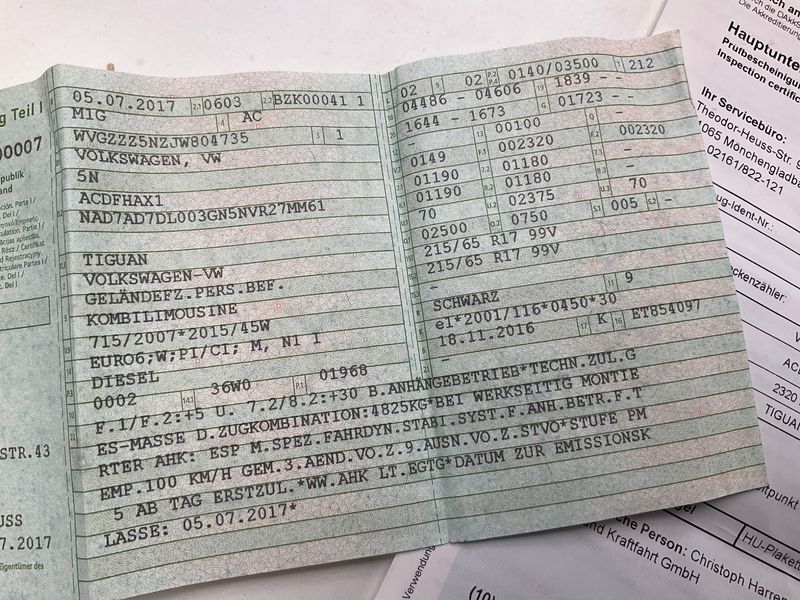 g Teil I
00007
STR.43
USS
.07.2017
Eigentümer des
05.07.2017 2.1 0603 2.2 BZK00041 1
M1G 4 AC
WVGZZZ5NZJW804735 3 1
VOLKSWAGEN, VW
5N
ACDFHAX1
NAD7AD7DL003GN5NVR27MM61
TIGUAN
VOLKSWAGEN-VW
GELÄNDEFZ.PERS.BEF.
KOMBILIMOUSINE
715/2007*2015/45W
EURO6;W;PI/CI; M, N1 I
DIESEL
0002 14.1 36W0 P.1 01968
02 9 02 P.2 P.4 0140/03500 T 212
04486 - 04606 19 1839 - -
1644 - 1673 G 01723 - -
- 13 00100 Q -
0149 F.1 002320 F.2 002320
01190 7.2 01180 7.3 -
01190 8.2 01180 8.3 -
70 02375 U.3 70
02500 O.2 0750 S.1 005 S.2 -
215/65 R17 99V
215/65 R17 99V
-
SCHWARZ 11 9
e1*2001/116*0450*30
18.11.2016 17 K 16 ET854097
-
F.1/F.2:+5 U. 7.2/8.2:+30 B.ANHÄNGEBETRIEB*TECHN.ZUL.G
ES-MASSE D.ZUGKOMBINATION:4825KG*BEI WERKSEITIG MONTIE
RTER AHK: ESP M.SPEZ.FAHRDYN.STABI.SYST.F.ANH.BETR.F.T
EMP.100 KM/H GEM.3.AEND.VO.Z.9.AUSN.VO.Z.STVO*STUFE PM
5 AB TAG ERSTZUL.*WW.AHK LT.EGTG*DATUM ZUR EMISSIONSK
LASSE: 05.07.2017*
Die Akkreditierung
Hauptunte
Prüfbescheinigung
Inspection certific
Ihr Servicebüro:
Theodor-Heuss-Str. 9
1065 Mönchengladba
02161/822-121
ug-Ident-Nr.:
eckenzähler:
V
ACD
2320
TIGUAN
itpunkt
HU-Plakette
che Person: Christoph Harren
nd Kraftfahrt GmbH
Verwendung
(10)